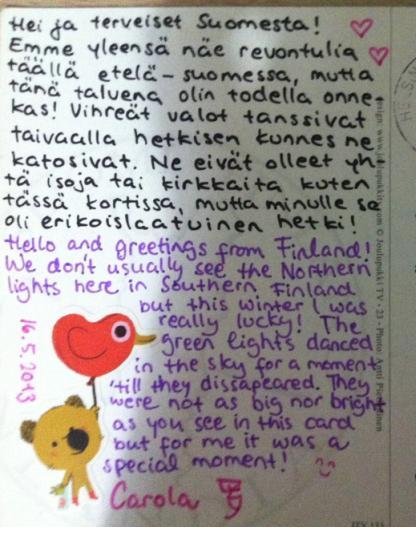 Hei ja terveiset Suomesta!
Emme yleensä näe revontulia
täällä etelä-suomessa, mutta
tänä talvena olin todella onne-
kas! Vihreät valot tanssivat
taivaalla hetkisen kunnes ne
katosivat. Ne eivät olleet yh-
tä isoja tai kirkkaita kuten
tässä kortissa, mutta minulle se
oli erikoislaatuinen hetki!
Hello and greetings from Finland!
We don't usually see the Northern
lights here in Southern Finland
but this winter I was
really lucky! The
green lights danced
in the sky for a moment
'till they dissapeared. They
were not as big nor bright
as you see in this card
but for me it was a
special moment!
Carola
16.5.2013
www.joulupukki.com © Joulupukki TV - 23 - Photo Antti